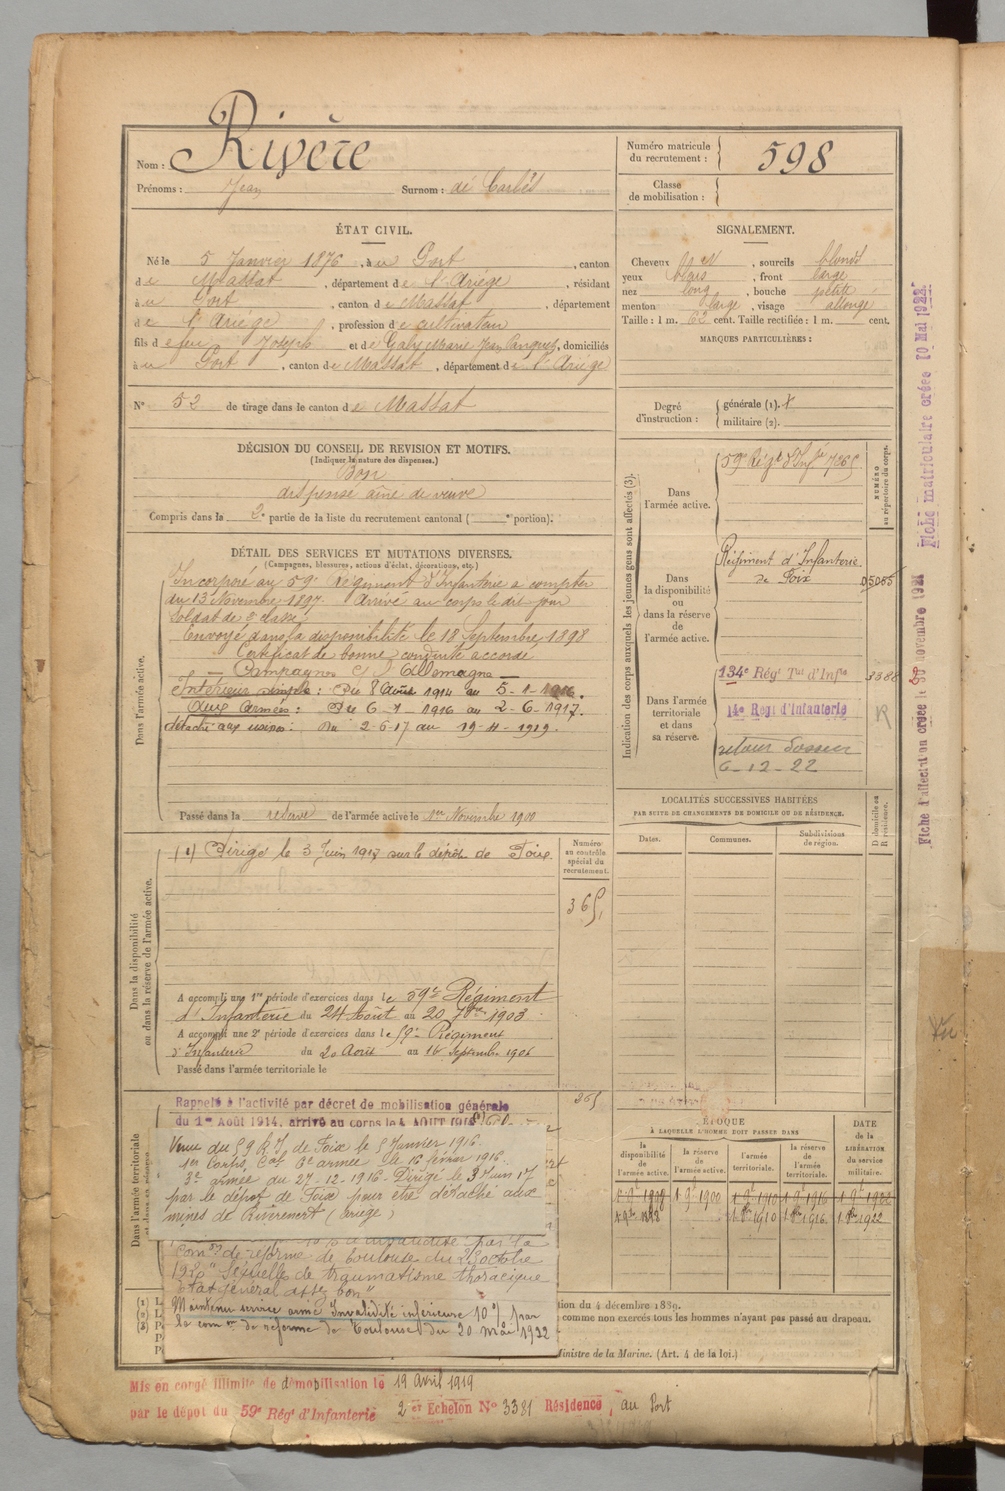 Nom : Rivère
Prénoms : Jean Surnom : de Carlés
Numéro matricule du recrutement : 598
Classe de mobilisation :
ÉTAT CIVIL.
Né le 5 Janvier 1876, à u Port, canton
d e Massat, département d e l'Ariège, résidant
à u Port, canton d e Massat, département
d e l'Ariège, profession d e cultivateur
fils d e feu Joseph et d e Galy Marie Jeanne, domiciliés
à u Port, canton d e Massat, département d e l'Ariège
N° 52 de tirage dans le canton d e Massat
SIGNALEMENT.
Cheveux, sourcils blonds
yeux bleus, front large
nez long, bouche petite
menton large, visage allongé
Taille : 1 m. 62 cent. Taille rectifiée : 1 m. cent.
MARQUES PARTICULIÈRES :
Degré d'instruction : générale (1). X
militaire (2).
DÉCISION DU CONSEIL DE REVISION ET MOTIFS.
(Indiquer la nature des dispenses.)
Bon
dispensé aîné de veuve
Compris dans la 2e partie de la liste du recrutement cantonal ( e portion).
DÉTAIL DES SERVICES ET MUTATIONS DIVERSES.
(Campagnes, blessures, actions d'éclat, décorations, etc.)
Dans l'armée active.
Incorporé au 59e Régiment d'Infanterie à compter
du 13 Novembre 1897. Arrivé au corps le dit jour
Soldat de 2e classe
Envoyé dans la disponibilité le 18 Septembre 1898
Certificat de bonne conduite accordé
Campagnes c/ l'Allemagne
Intérieur simple : Du 8 Août 1914 au 5-1-1916.
Aux Armées : Du 6-1-1916 au 2-6-1917.
détaché aux usines. Du 2-6-17 au 19-4-1919.
Passé dans la réserve de l'armée active le 1er Novembre 1900
Indication des corps auxquels les jeunes gens sont affectés (3).
NUMÉRO au répertoire du corps.
Dans l'armée active.
59e Régt d'Infie 7265
Dans la disponibilité ou dans la réserve de l'armée active.
Régiment d'Infanterie
de Foix
05055
Dans l'armée territoriale et dans sa réserve.
134e Régt Tal d'Infie 3388
14e Régt d'Infanterie R
retour Dossier
6-12-22
Fiche matriculaire créée 10 Mai 1922
Fiche d'affectation créée le 20 novembre 1921
Dans la disponibilité ou dans la réserve de l'armée active.
(1) Dirigé le 3 Juin 1917 sur le dépôt de Foix
Numéro au contrôle spécial du recrutement.
365
A accompli une 1re période d'exercices dans le 59e Régiment
d'Infanterie du 24 Août au 20 7bre 1903
A accompli une 2e période d'exercices dans le 59e Régiment
d'Infanterie du 20 Août au 16 Septembre 1906
Passé dans l'armée territoriale le
LOCALITÉS SUCCESSIVES HABITÉES
PAR SUITE DE CHANGEMENTS DE DOMICILE OU DE RÉSIDENCE.
Dates. Communes. Subdivisions de région. Domicile ou Résidence.
Vu
Dans l'armée territoriale
Rappelé à l'activité par décret de mobilisation générale
du 1er Août 1914, arrivé au corps le 4 AOUT 1914
265
Venu du 59 R.I. de Foix le 5 Janvier 1916.
1er Corps, Cal 6e armée le 16 février 1916
3e armée du 27-12-1916. Dirigé le 3 Juin 17
par le dépôt de Foix pour être détaché aux
mines de Rivèrenert (Ariège)
10 % d'invalidité par la
Comon de réforme de Toulouse du 28 octobre
1920 "Séquelles de traumatisme thoracique
état général assez bon"
Maintenu service armé Invalidité inférieure 10 % par
la comon de réforme de Toulouse du 20 Mai 1922
ÉPOQUE
À LAQUELLE L'HOMME DOIT PASSER DANS
la disponibilité de l'armée active. la réserve de l'armée active. l'armée territoriale. la réserve de l'armée territoriale.
DATE de la LIBÉRATION du service militaire.
1 9e 1900
1 9bre 1910 1 9bre 1916 1 9bre 1922
tion du 4 décembre 1889.
comme non exercés tous les hommes n'ayant pas passé au drapeau.
Ministre de la Marine. (Art. 4 de la loi.)
Mis en congé illimité de démobilisation le 19 Avril 1919
par le dépôt du 59e Régt d'Infanterie 2er Echelon N° 3381 Résidence, au Port